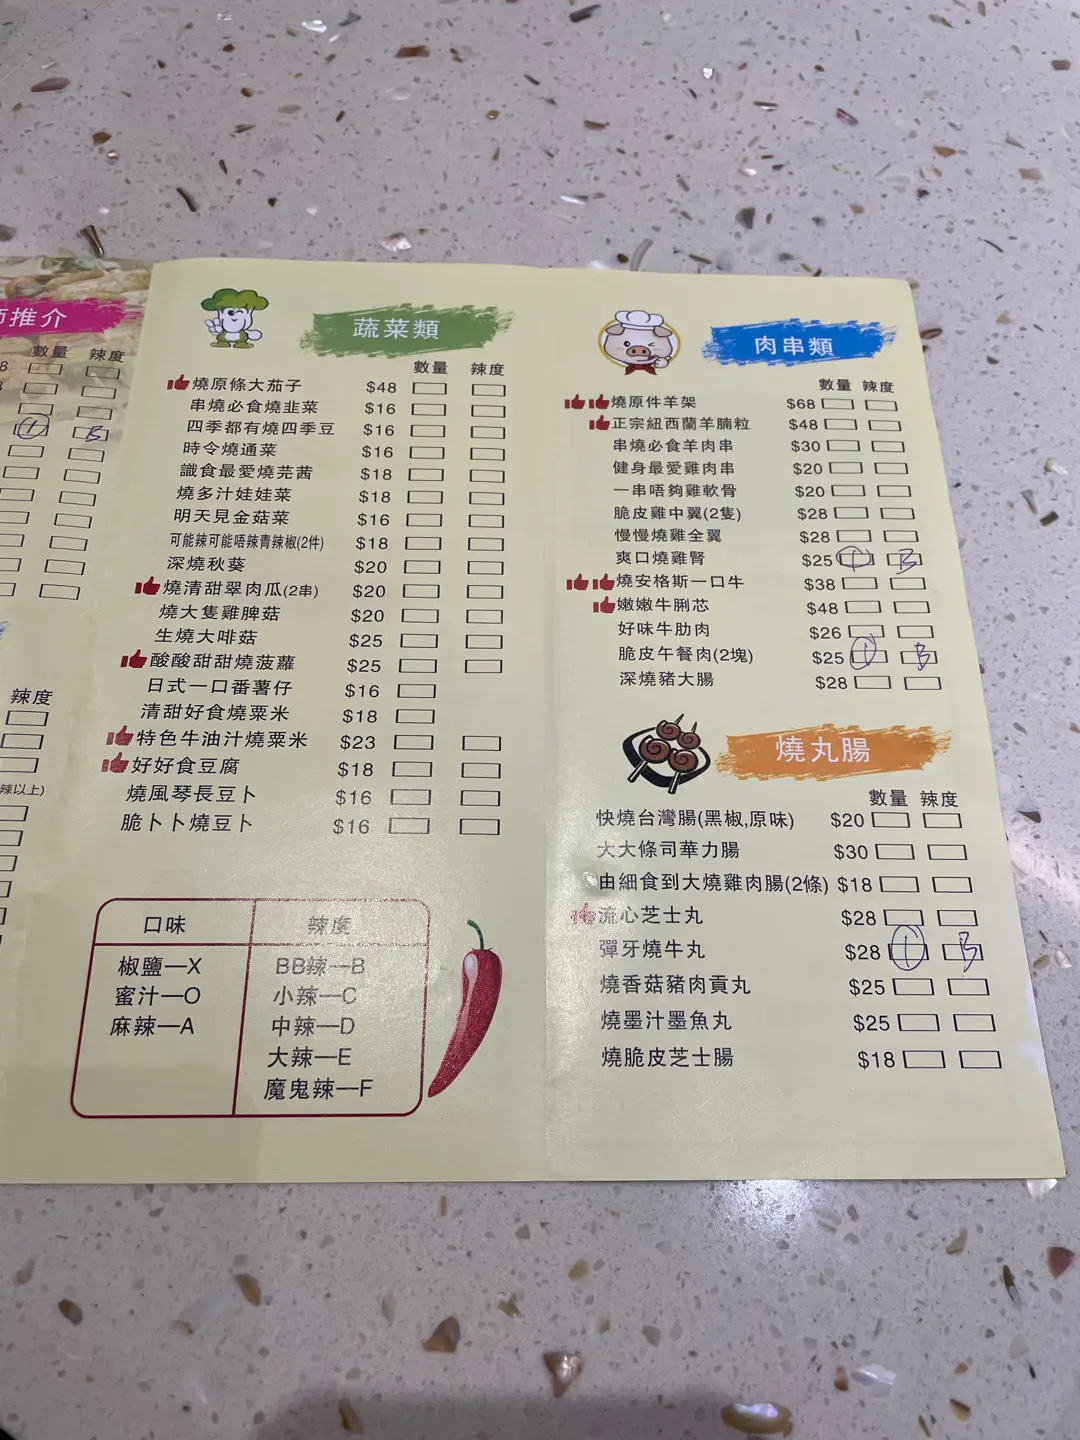 推介
數量 辣度
8
① B
辣度
辣以上)
蔬菜類
數量 辣度
燒原條大茄子 $48
串燒必食燒韭菜 $16
四季都有燒四季豆 $16
時令燒通菜 $16
識食最愛燒芫茜 $18
燒多汁娃娃菜 $18
明天見金菇菜 $16
可能辣可能唔辣青辣椒(2件) $18
深燒秋葵 $20
燒清甜翠肉瓜(2串) $20
燒大隻雞脾菇 $20
生燒大啡菇 $25
酸酸甜甜燒菠蘿 $25
日式一口番薯仔 $16
清甜好食燒粟米 $18
特色牛油汁燒粟米 $23
好好食豆腐 $18
燒風琴長豆卜 $16
脆卜卜燒豆卜 $16
口味 辣度
椒鹽—X BB辣—B
蜜汁—O 小辣—C
麻辣—A 中辣—D
大辣—E
魔鬼辣—F
肉串類
數量 辣度
燒原件羊架 $68
正宗紐西蘭羊腩粒 $48
串燒必食羊肉串 $30
健身最愛雞肉串 $20
一串唔夠雞軟骨 $20
脆皮雞中翼(2隻) $28
慢慢燒雞全翼 $28
爽口燒雞腎 $25 ① B
燒安格斯一口牛 $38
嫩嫩牛脷芯 $48
好味牛肋肉 $26
脆皮午餐肉(2塊) $25 ① B
深燒豬大腸 $28
燒丸腸
數量 辣度
快燒台灣腸(黑椒,原味) $20
大大條司華力腸 $30
由細食到大燒雞肉腸(2條) $18
流心芝士丸 $28
彈牙燒牛丸 $28 ① B
燒香菇豬肉貢丸 $25
燒墨汁墨魚丸 $25
燒脆皮芝士腸 $18